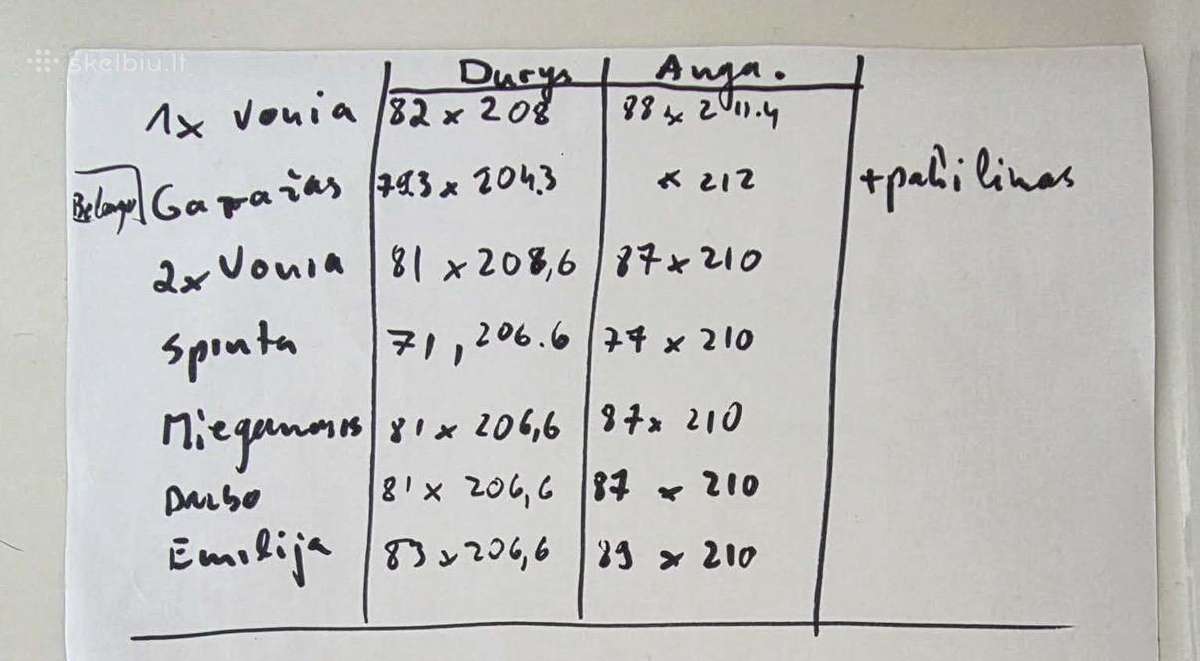 skelbiu.lt
Durys Anga.
1x Vonia 82 x 208 88 x 211.4
Garažas 79.3 x 204.3 x 212
2x Vonia 81 x 208,6 87 x 210
Spinta 71, 206.6 77 x 210
Miegamasis 81 x 206,6 87 x 210
Darbo 81 x 206,6 87 x 210
Emilija 83 x 206,6 89 x 210